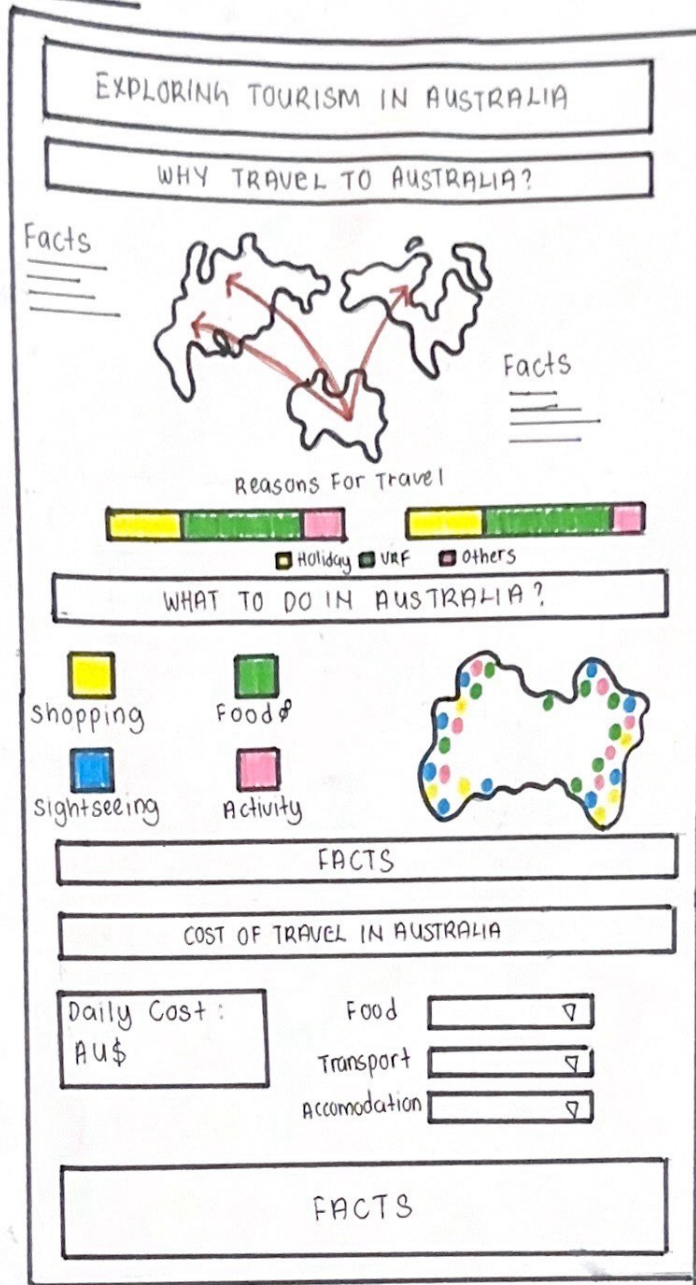 EXPLORING TOURISM IN AUSTRALIA
WHY TRAVEL TO AUSTRALIA?
Facts
Facts
Reasons For Travel
Holiday VRF Others
WHAT TO DO IN AUSTRALIA?
Shopping Food
Sightseeing Activity
FACTS
COST OF TRAVEL IN AUSTRALIA
Daily Cost :
AU$
Food
Transport
Accomodation
FACTS